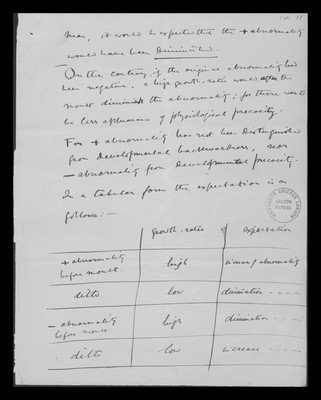 mean, it would be expected that the + abnormality
would have been Diminished.
On the contrary, if the original abnormality had
been negative, a high growth-rate would after the
moult diminish the abnormality; for there would
be less appearance of physiological precocity.
For + abnormality has not been Distinguished
from developmental backwardness, nor
— abnormality from Developmental precocity.
In a tabular form the expectation is as
follows:—
UNIVERSITY COLLEGE LONDON
GALTON
PAPERS
growth-rates expectation
+ abnormality
before moult. high increase of abnormality
ditto low diminution - - - -
— abnormality
before moult high diminution - - - -
ditto low increase - - - -